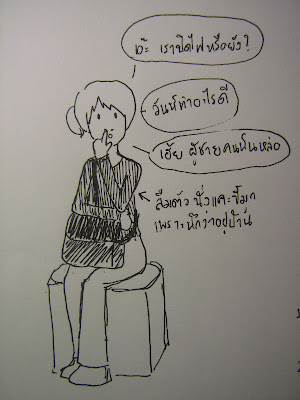 เอ๊ะ เราปิดไฟหรือยัง?
วันนี้ทำอะไรดี
เฮ้ย ผู้ชายคนนั้นหล่อ
ลืมตัว นั่งแคะขี้มูก
เพราะนึกว่าอยู่บ้าน